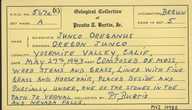 5676 Oological Collection BEGUN
A Prentis T. Burtis, Jr. 5
JUNCO OREGANUS
OREGON JUNCO
YOSEMITE VALLEY, CALIF.
MAY 27TH, 1943 COMPOSED OF MOSS,
WEED STEMS AND GRASS, LINED WITH FINE
GRASS AND HORSEHAIR, PLACED BESIDE AND
PARTIALLY UNDER, ONE OF THE STONES IN THE
PATH TO VERNAL
AND NEVADA FALLS.